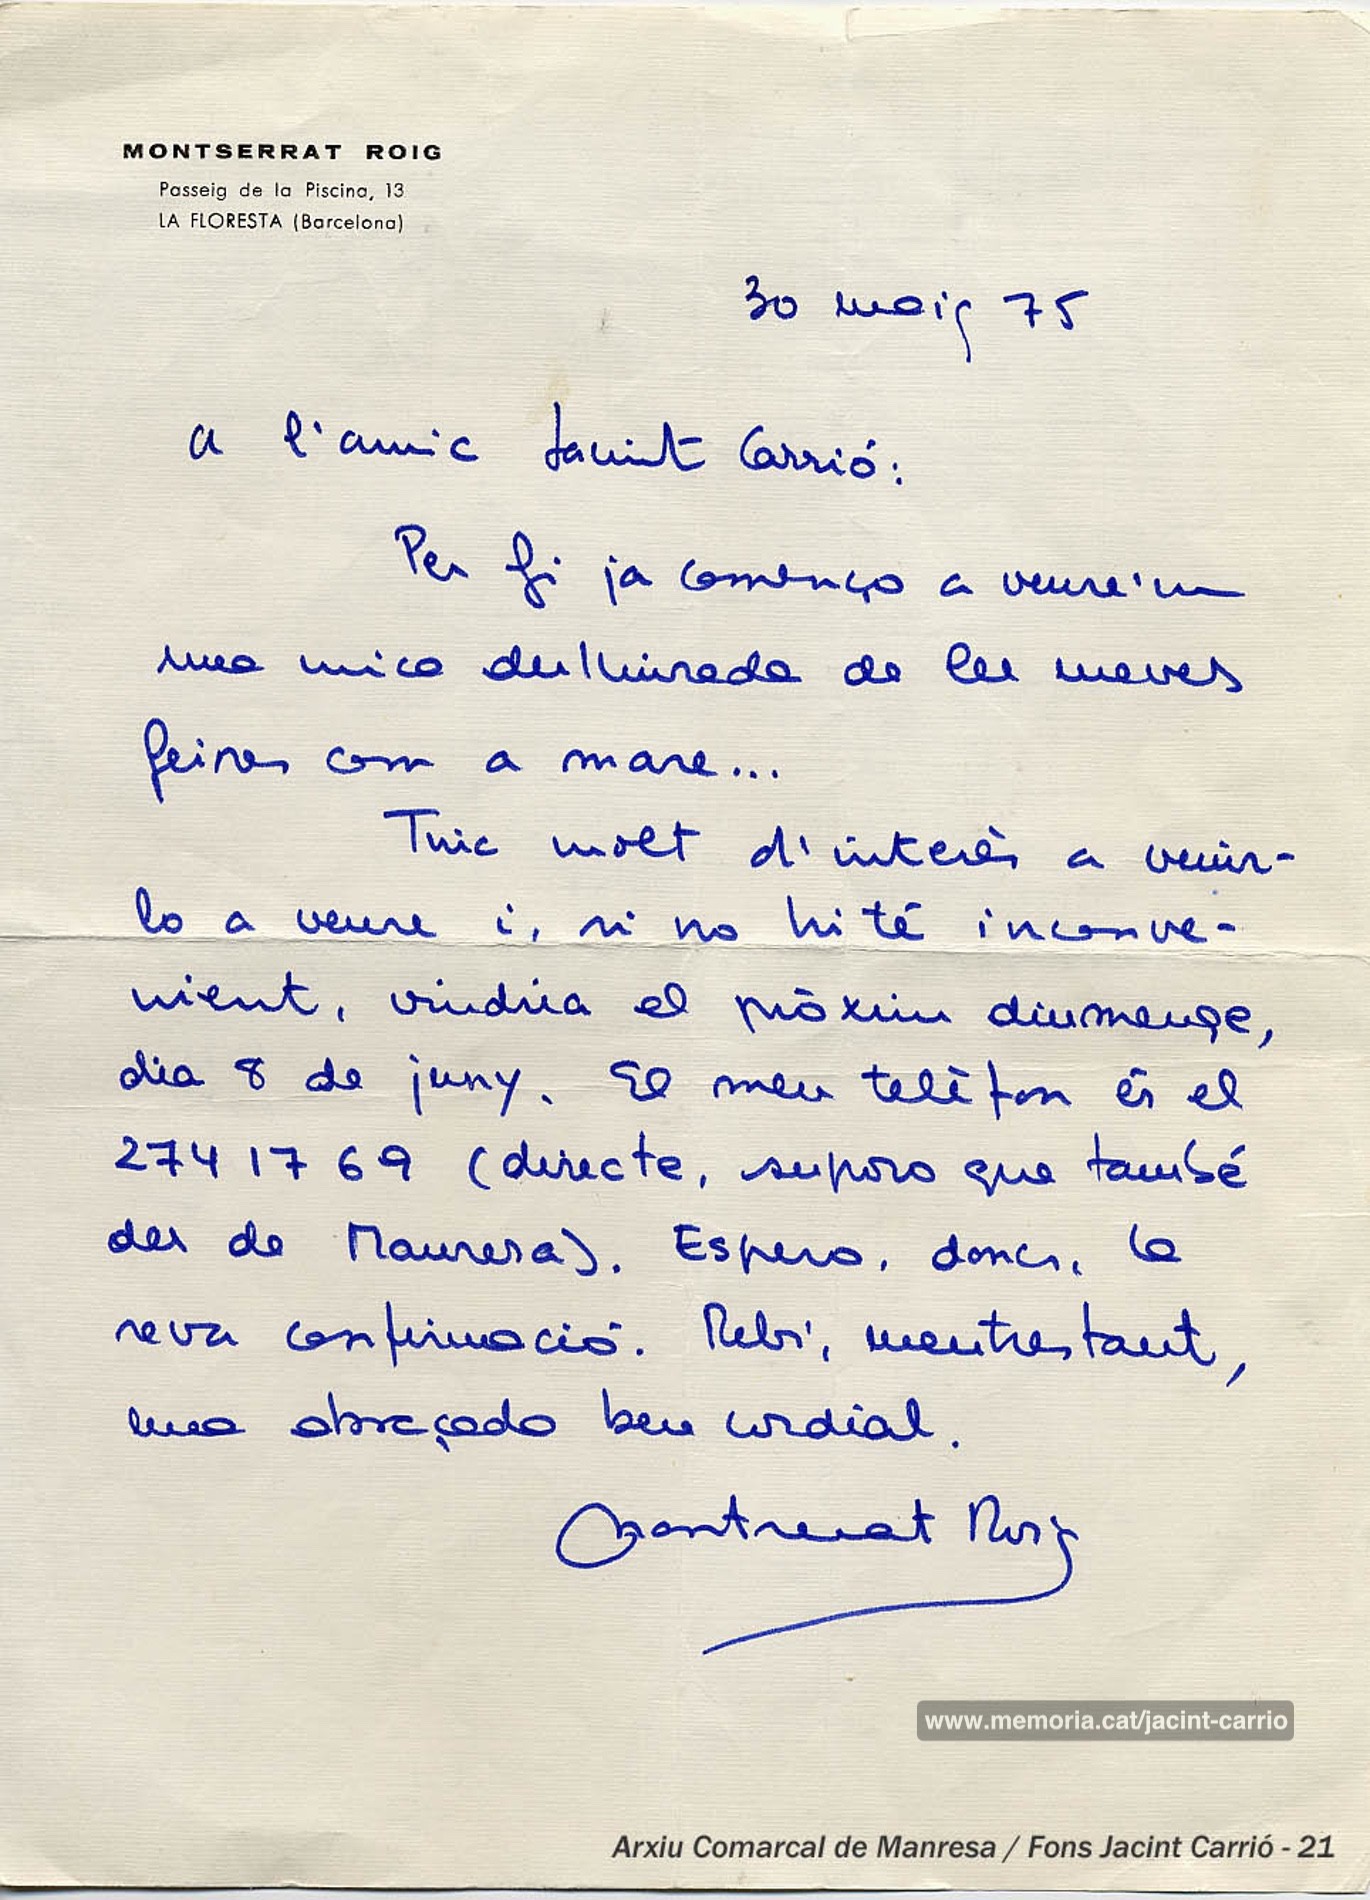 MONTSERRAT ROIG
Passeig de la Piscina, 13
LA FLORESTA (Barcelona)
30 maig 75
a l'amic Jacint Carrió:
Per fi ja començo a veure'm
una mica deslliurada de les meves
feines com a mare...
Tinc molt d'interès a venir-
lo a veure i, si no hi té inconve-
nient, vindria el pròxim diumenge,
dia 8 de juny. El meu telèfon és el
274 17 69 (directe, suposo que també
des de Manresa). Espero, doncs, la
seva confirmació. Rebi, mentrestant,
una abraçada ben cordial.
Montserrat Roig
www.memoria.cat/jacint-carrio
Arxiu Comarcal de Manresa / Fons Jacint Carrió - 21